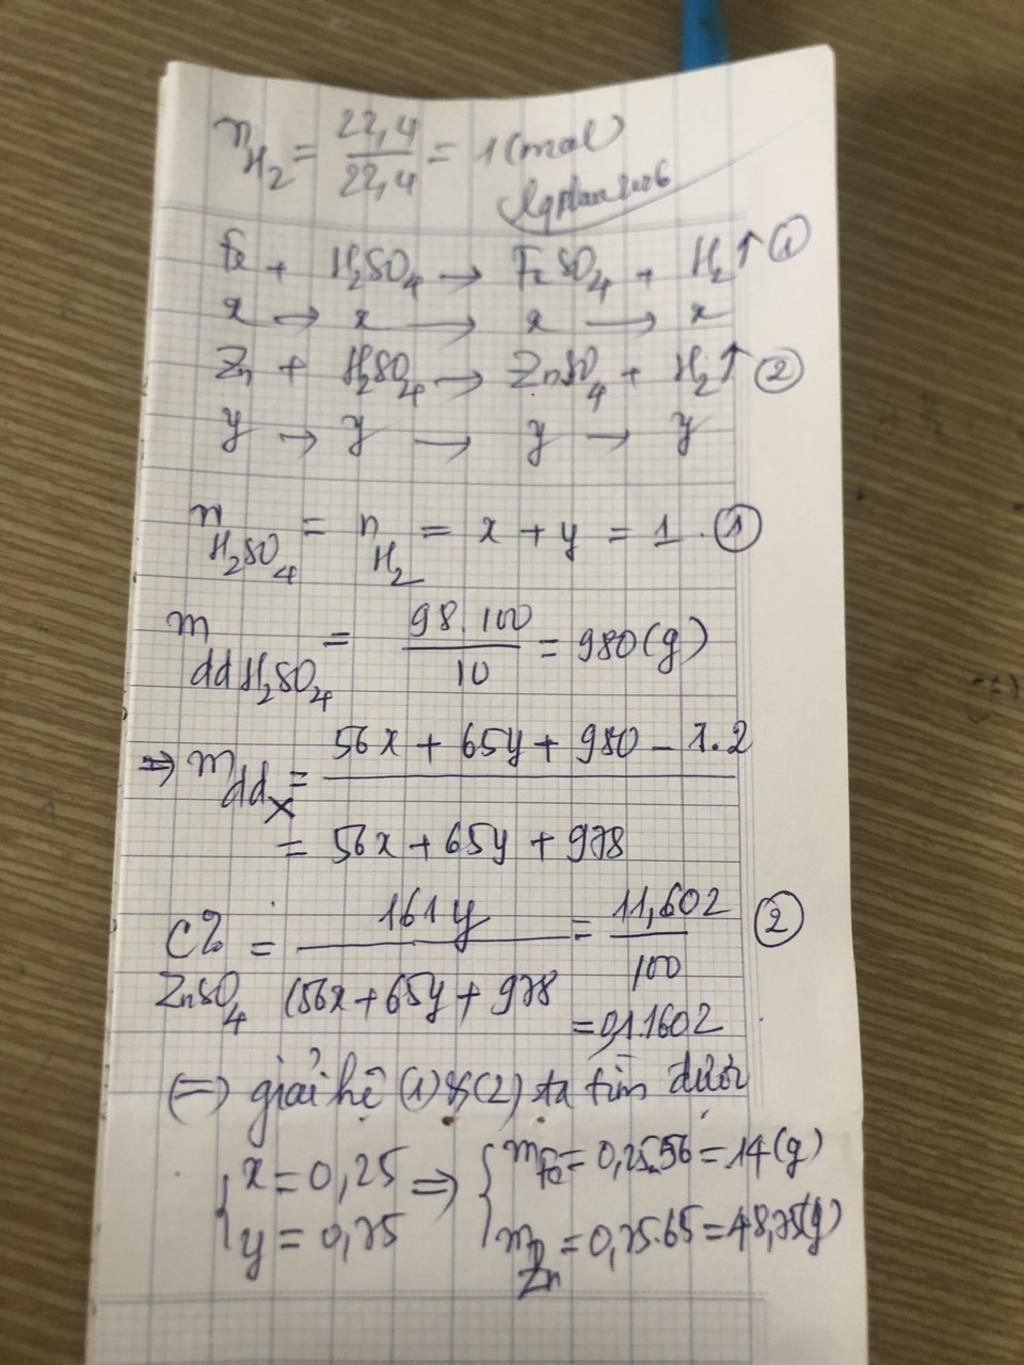 n H₂ = 22,4 / 22,4 = 1 (mol)
Fe + H₂SO₄ → FeSO₄ + H₂↑ ①
x → x → x → x
Zn + H₂SO₄ → ZnSO₄ + H₂↑ ②
y → y → y → y
n H₂SO₄ = n H₂ = x + y = 1 . ①
m dd H₂SO₄ = 98.100 / 10 = 980 (g)
⇒ m dd X = 56x + 65y + 980 - 1.2
= 56x + 65y + 978
C% ZnSO₄ = 161y / (56x + 65y + 978 = 11,602 / 100 ②
= 0,11602
(=) giải hệ (1) & (2) ta tìm được
{ x = 0,25 ⇒ { m Fe = 0,25.56 = 14 (g)
y = 0,75 m Zn = 0,75.65 = 48,75 (g)